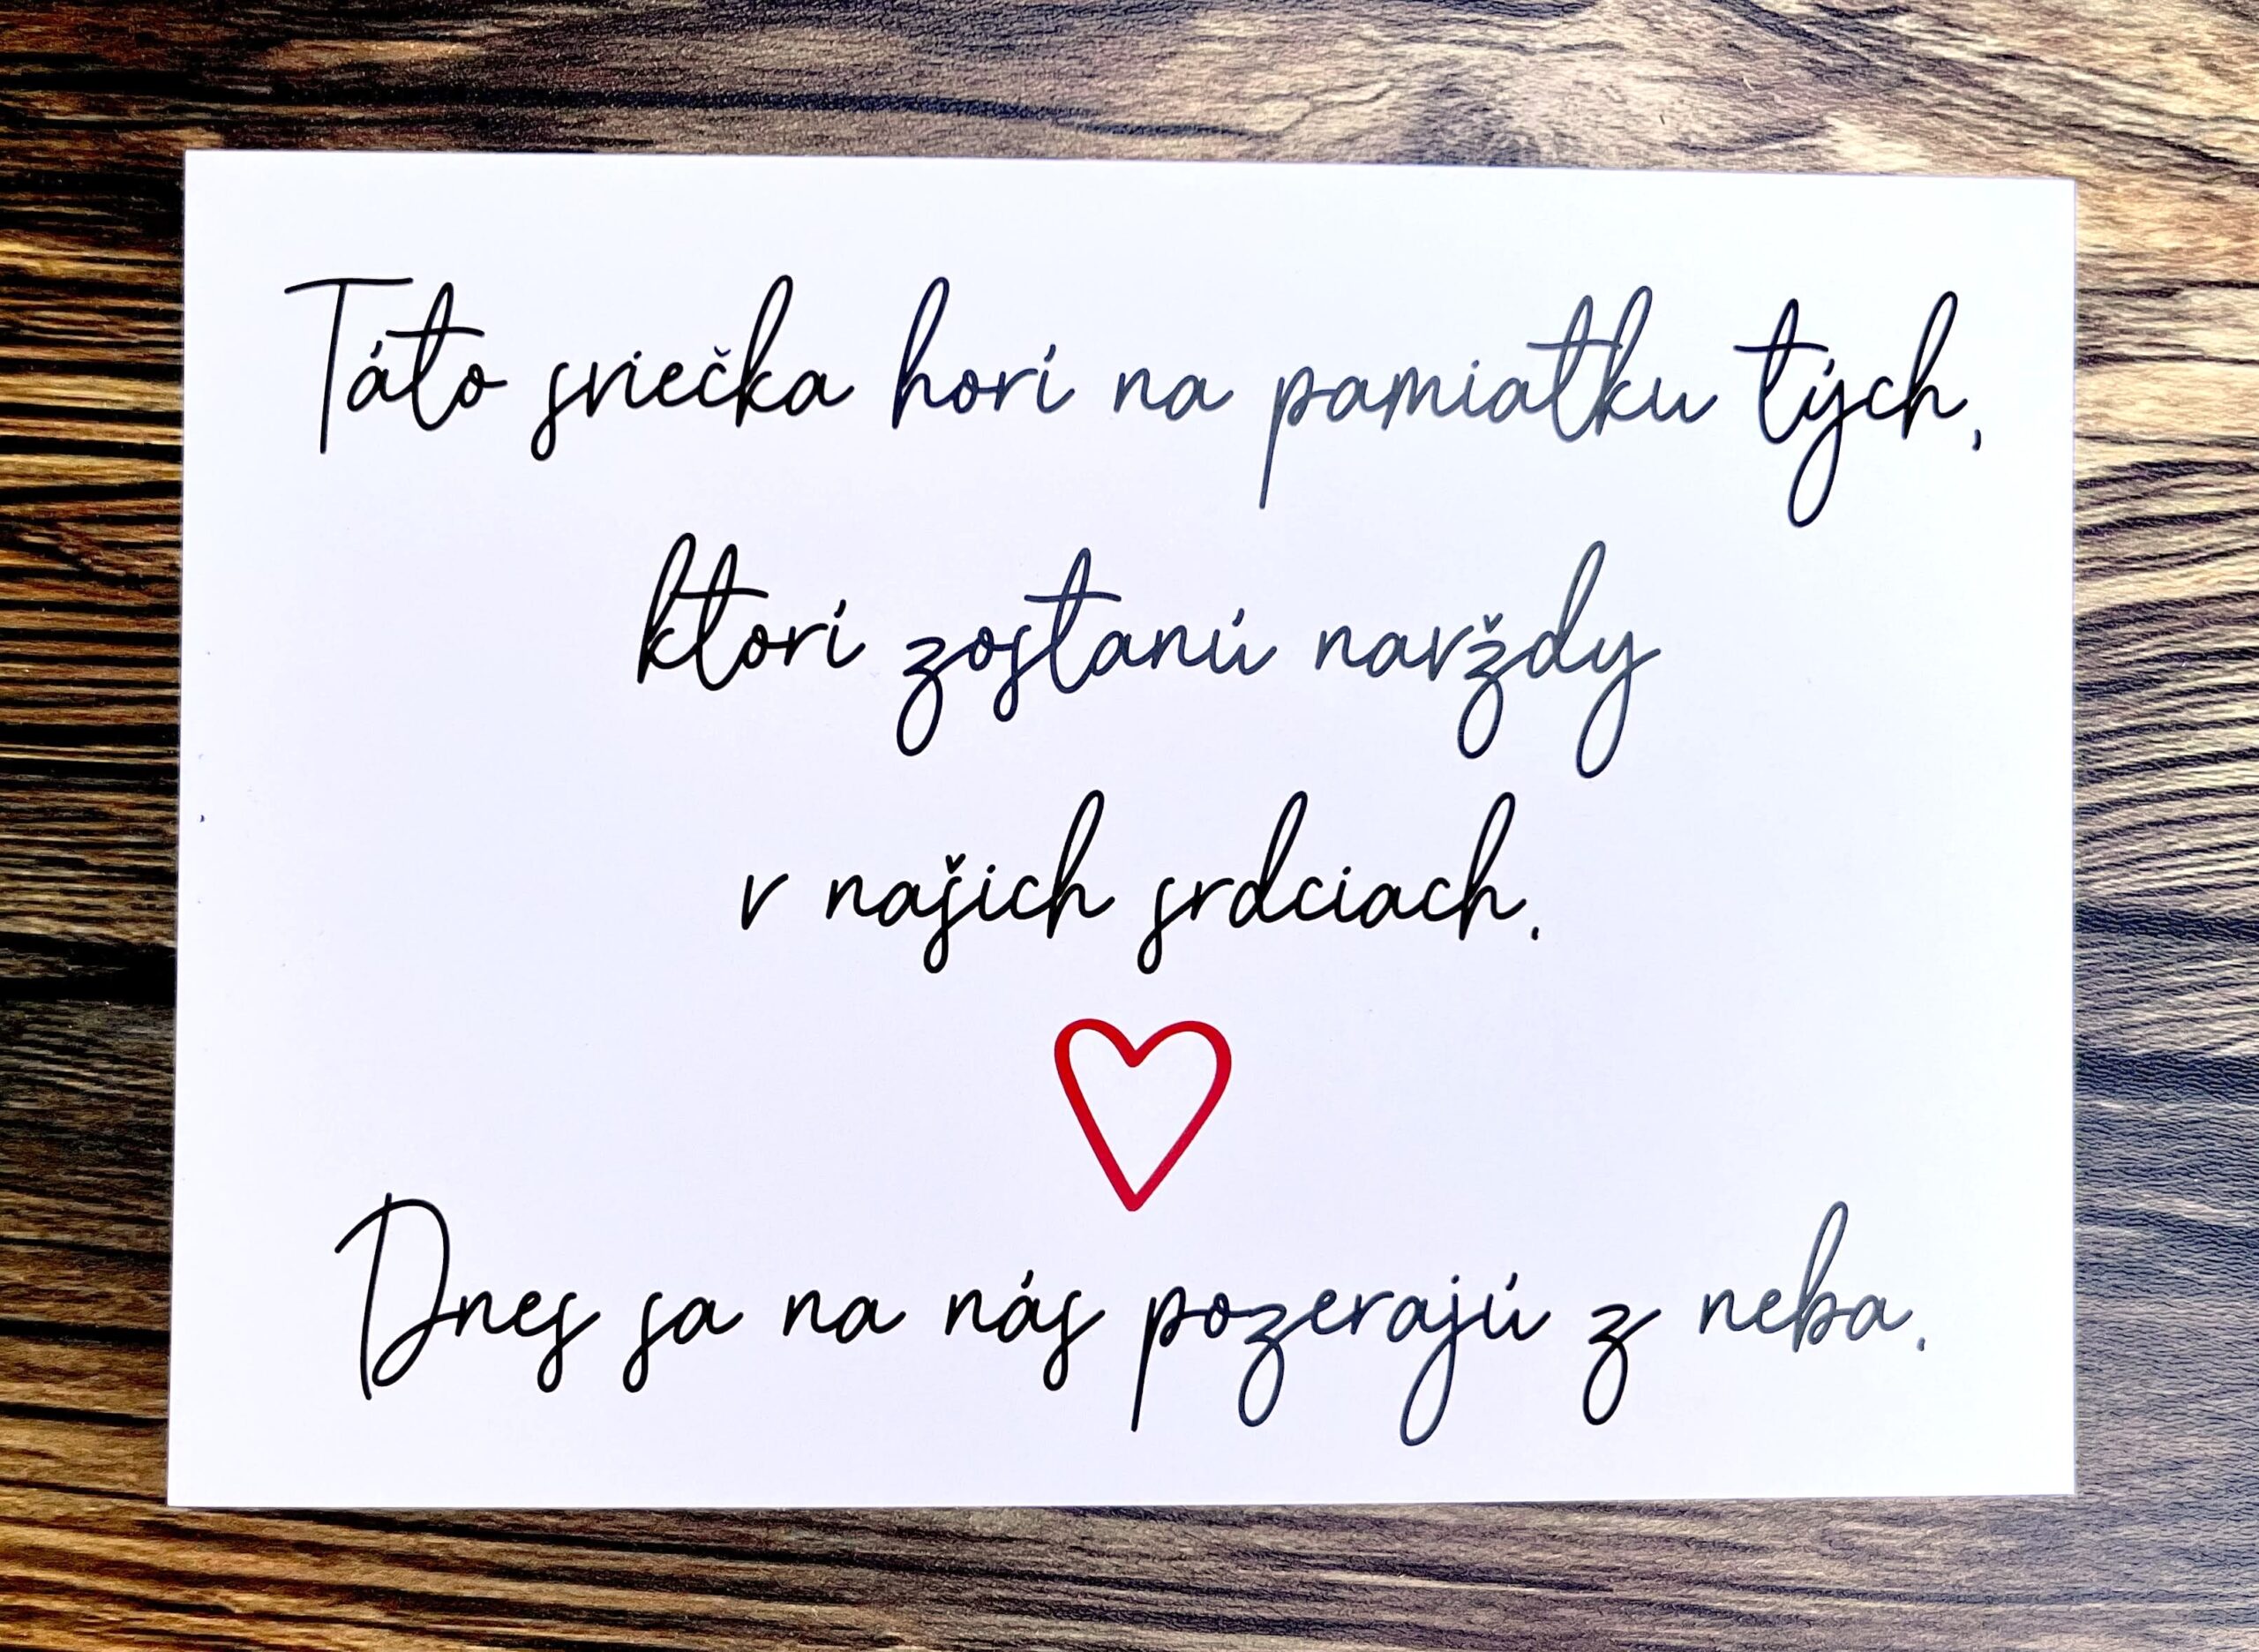 Táto sviečka horí na pamiatku tých,
ktorí zostanú navždy
v našich srdciach.
Dnes sa na nás pozerajú z neba.